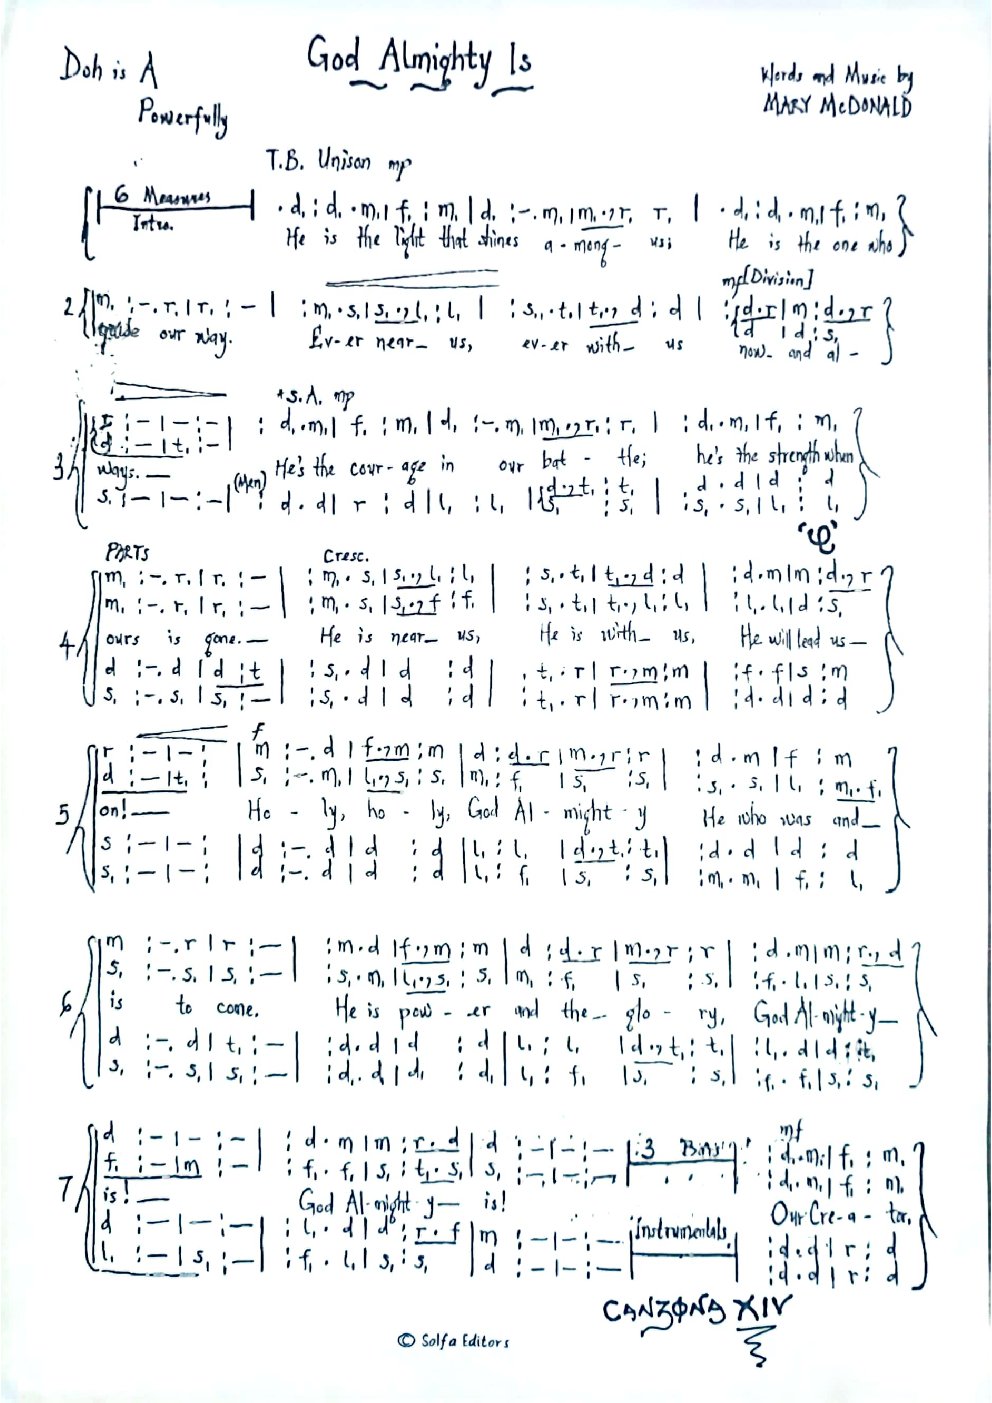 God Almighty Is
Doh is A
Powerfully
Words and Music by
MARY McDONALD
T.B. Unison mp
6 Measures
Intro.
. d, : d, . m, | f, : m, | d, : - . m, | m, . , r, r, | . d, : d, . m, | f, : m,
He is the light that shines a - mong - us; He is the one who
mf [Division]
2 m, : - . r, | r, : - | : m, . s, | s, . , l, : l, | : s, . t, | t, . , d : d | : d . r | m : d . , r
d | d : s,
guide our way. Ev-er near_ us, ev-er with_ us now_ and al -
+ S.A. mp
3 r : - | - : - | : d, . m, | f, : m, | d, : - . m, | m, . , r, : r, | : d, . m, | f, : m,
d : - | t, : -
ways. _ He's the cour - age in our bat - tle; he's the strength when
(Men)
s, : - | - : - | d . d | r : d | l, : l, | d . , t, : t, | : d . d | d : d
s, : s, | : s, . s, | l, : l,
PARTS Cresc.
m, : - . r, | r, : - | : m, . s, | s, . , l, : l, | : s, . t, | t, . , d : d | : d . m | m : d . , r
m, : - . r, | r, : - | : m, . s, | s, . , f : f, | : s, . t, | t, . , l, : l, | : l, . l, | d : s,
4 ours is gone. _ He is near_ us, He is with_ us, He will lead us _
d : - . d | d : t | : s, . d | d : d | . t, . r | r . , m : m | : f . f | s : m
s, : - . s, | s, : - | : s, . d | d : d | : t, . r | r . , m : m | : d . d | d : d
f
r : - | - : | m : - . d | f . , m : m | d : d . r | m . , r : r | : d . m | f : m
d : - | t, : | s, : - . m, | l, . , s, : s, | m, : f, | s, : s, | : s, . s, | l, : m, . f,
5 on! _ Ho - ly, ho - ly, God Al - might - y He who was and _
s : - | - : | d : - . d | d : d | l, : l, | d . , t, : t, | : d . d | d : d
s, : - | - : | d : - . d | d : d | l, : f, | s, : s, | : m, . m, | f, : l,
m : - . r | r : - | : m . d | f . , m : m | d : d . r | m . , r : r | : d . m | m : r . , d
s, : - . s, | s, : - | : s, . m, | l, . , s, : s, | m, : f, | s, : s, | : f, . l, | s, : s,
6 is to come. He is pow - er and the _ glo - ry, God Al - might - y _
d : - . d | t, : - | : d . d | d : d | l, : l, | d . , t, : t, | : l, . d | d : t,
s, : - . s, | s, : - | : d, . d, | d, : d, | l, : f, | s, : s, | : f, . f, | s, : s,
mf
d : - | - : - | : d . m | m : r . d | d : - | - : - | 3 Bars | : d, . m, | f, : m,
f, : - | m : - | : f, . f, | s, : t, . s, | s, : - | - : - | : d, . m, | f, : m,
7 is! _ God Al - might - y _ is! Our Cre - a - tor,
d : - | - : - | : l, . d | d : r . f | m : - | - : - | Instrumentals | : d . d | r : d
l, : - | s, : - | : f, . l, | s, : s, | d : - | - : - | : d . d | r : d
CANZONA XIV
© Solfa Editors